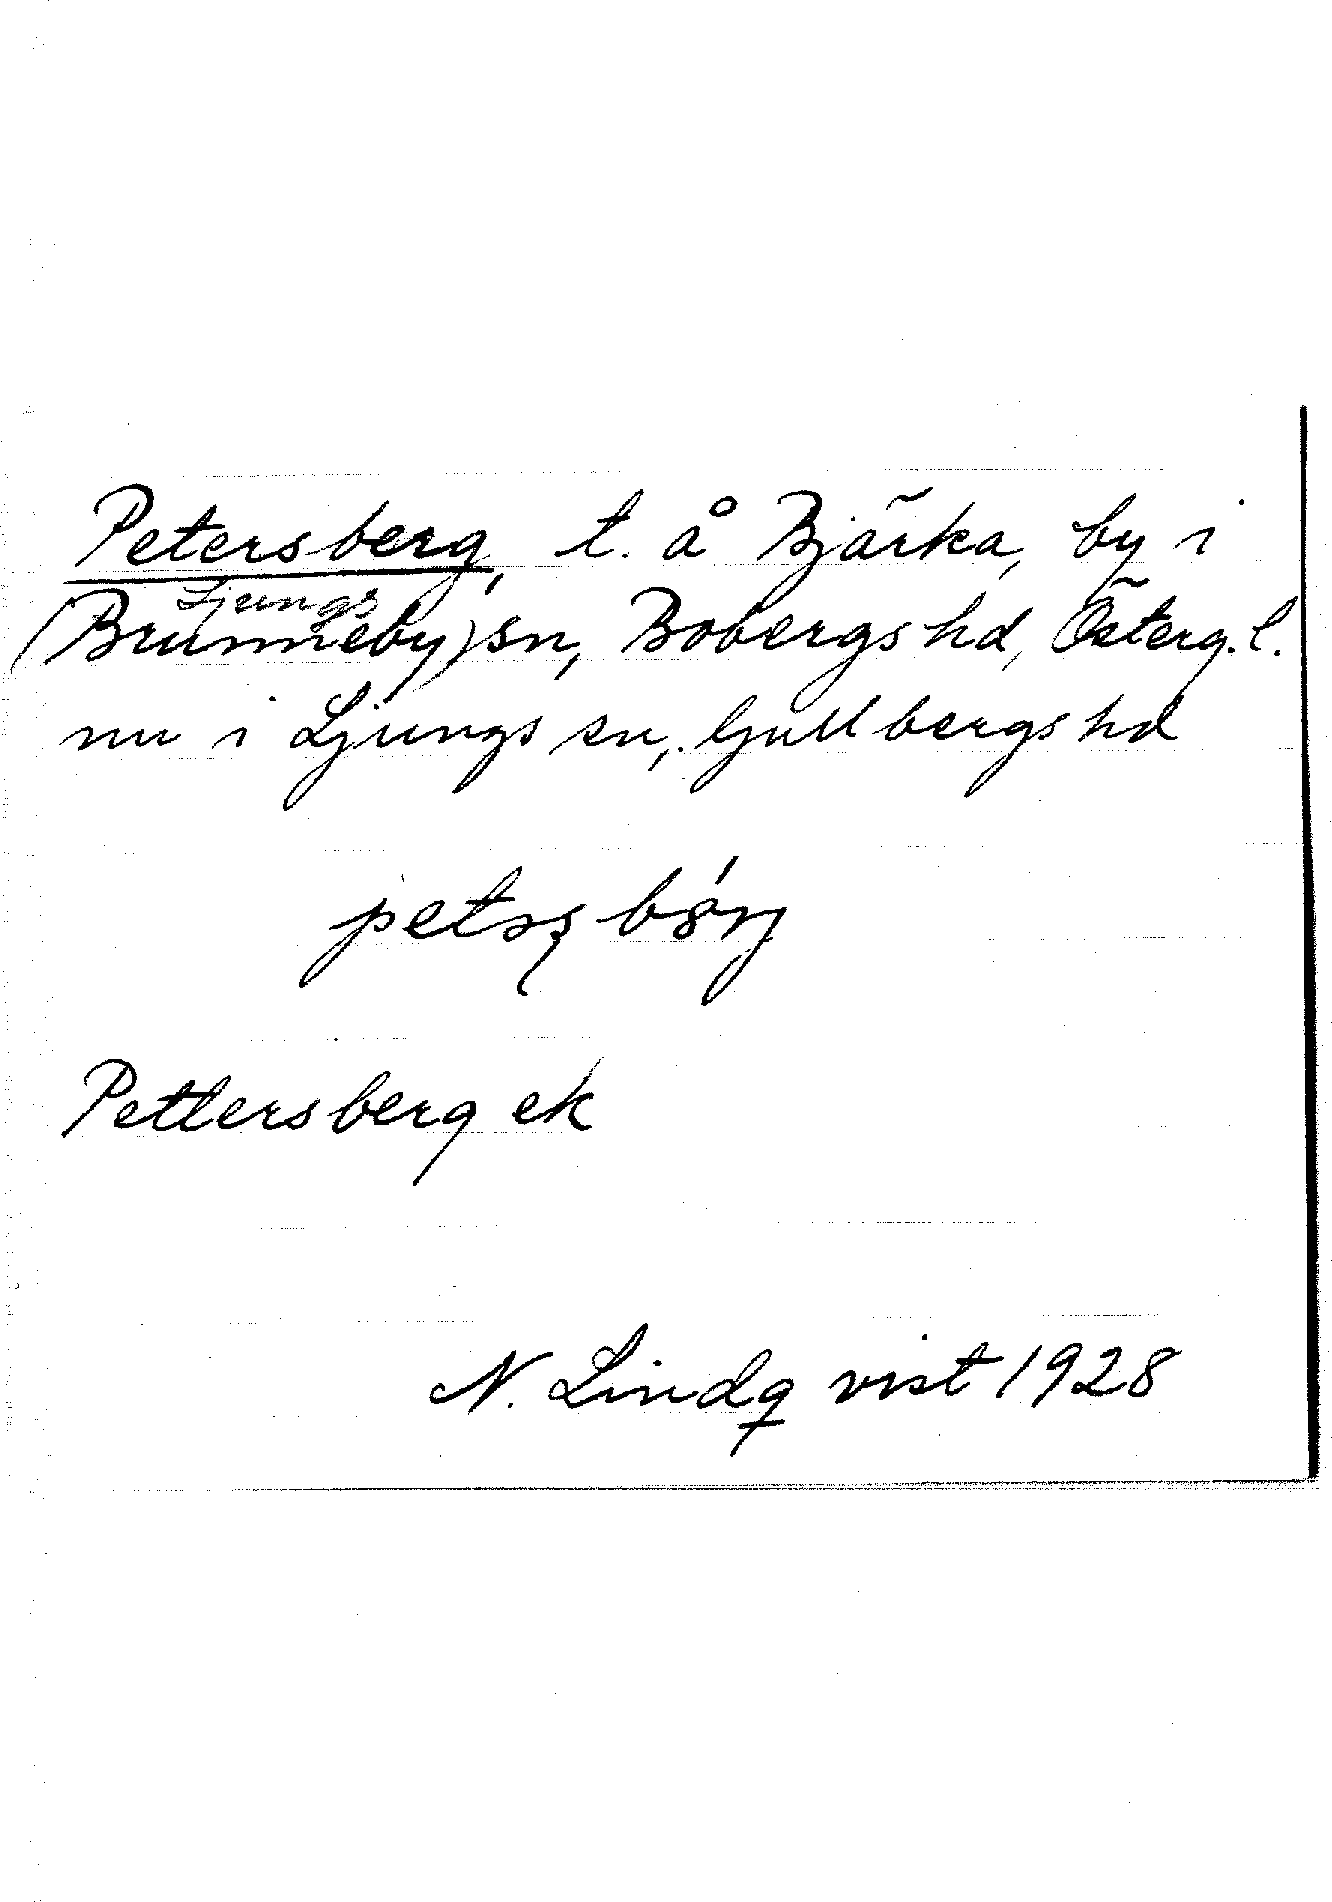 Petersberg, t. å Bjärka, by i
Ljungs
(Brunneby) sn, Bobergs hd, Österg.l.
nu i Ljungs sn, Gullbergs hd
Pettersberg ek
N. Lindqvist 1928